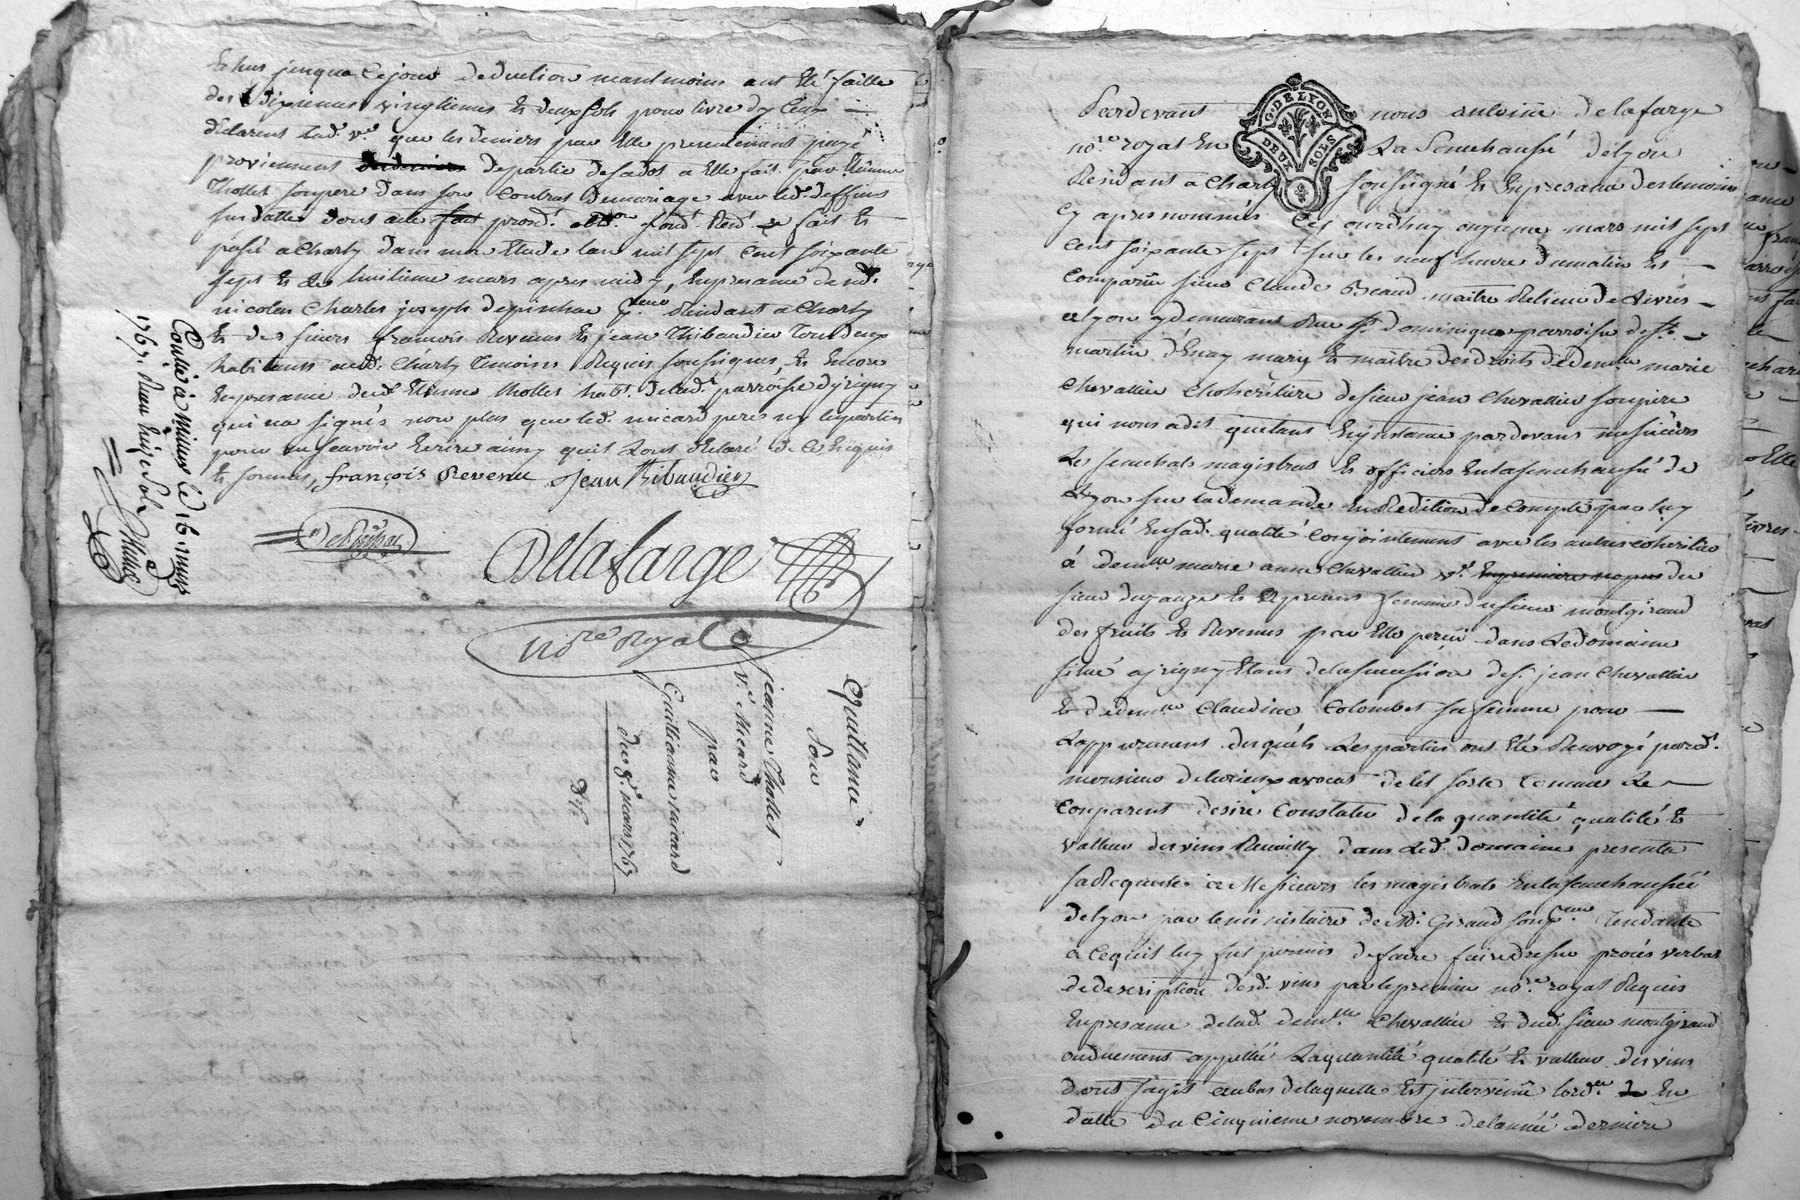 Echus jusqua ce jour deduction neantmoins ant été faitte
des dixiemes vingtiemes Et deux sols pour livre d'yceux
declarent lad. v.e que les deniers par Elle presentement payé
proviennent de partie de sa dot a Elle fait par Etienne
Thollet son pere dans son Contrat de mariage avec led. deffunt
sus datté dont acte fait et
passé a Charly dans mon Etude lan mil sept Cent soixante
sept Et Le huitieme mars apres midy, En presance de m.e
nicolas Charles joseph depinhac resident a Charly
Et des sieurs francois Revenu Et jean Thibaudier tous deux
habitants aud. Charly temoins Requis soussignés, Et Encore
En presance dud. Etienne Thollet hab.t de lad. parroisse d'yrigny
qui na signés non plus que led. micard peres ny les parties
pour ne scavoir Ecrire ainsy quil Lont declaré de Ce Enquis
Et sommés, françois Revenu Jean Thibaudier
Depinhac
Delafarge
no.re Royal
Conllé à Millery le 16 mars
1767. Reçu treize sols
Quittance
pour
jeanne Thollet
v.e Micard
par
Guillaume micard
du 8.e mars 1767
G. DE LYON
DEUX SOLS
Pardevant nous antoine delafarge
no.re royal En La Senechaussé de lyon
Residant a Charly soussigné Et En presance des temoins
Cy apres nommés Cejourdhuy onzieme mars mil sept
cent soixante sept sur les neuf heure du matin Est
Comparu sieur Claude Beaud maitre Relieur de Livres
a lyon y demeurant Rue St. dominique parroisse de St.
martin d'Enay mary Et maitre des droits de dem.lle marie
Chevallier Cohéritiere de sieur jean Chevallier son pere
qui nous a dit quetant En jnstance pardevant messieurs
Les senechals magistrats Et officiers En la senechaussé de
Lyon sur la demande En Reddition de Compte par luy
formé En sad. qualité Conjointement avec les autres coheritiers
à dem.lle marie anne Chevallier v.e En premiere nopces du
sieur Et a present femme du sieur montgirand
des fruits Et Revenus par Elle perçu dans Le domaine
situé a jrigny Etant de la succession de S.r jean Chevallier
Et de dem.lle Claudine Colombet sa femme pour
Lappurement desquels Les parties ont Eté Renvoyé pard.
monsieur avocat de tel sorte Comme Le
Comparent desire Constater de la quantité qualité Et
valleur des vins Recueilly dans Led. domaine presenta
sa Requeste a Messieurs les magistrats En la senechaussée
de lyon par le ministaire de M.e Girand son tendante
a ce quil luy fut permis de faire faire dresser procés verbal
de description desd. vins par le premier no.re royal Requis
En presance de lad. dem.lle Chevallier Et dud. sieur montgirand
ou duement appellée La quantité qualité Et valleur des vins
dont sagit au bas de laquelle Est jntervenue lord.ce En
datte du Cinquieme novembre de lannée derniere